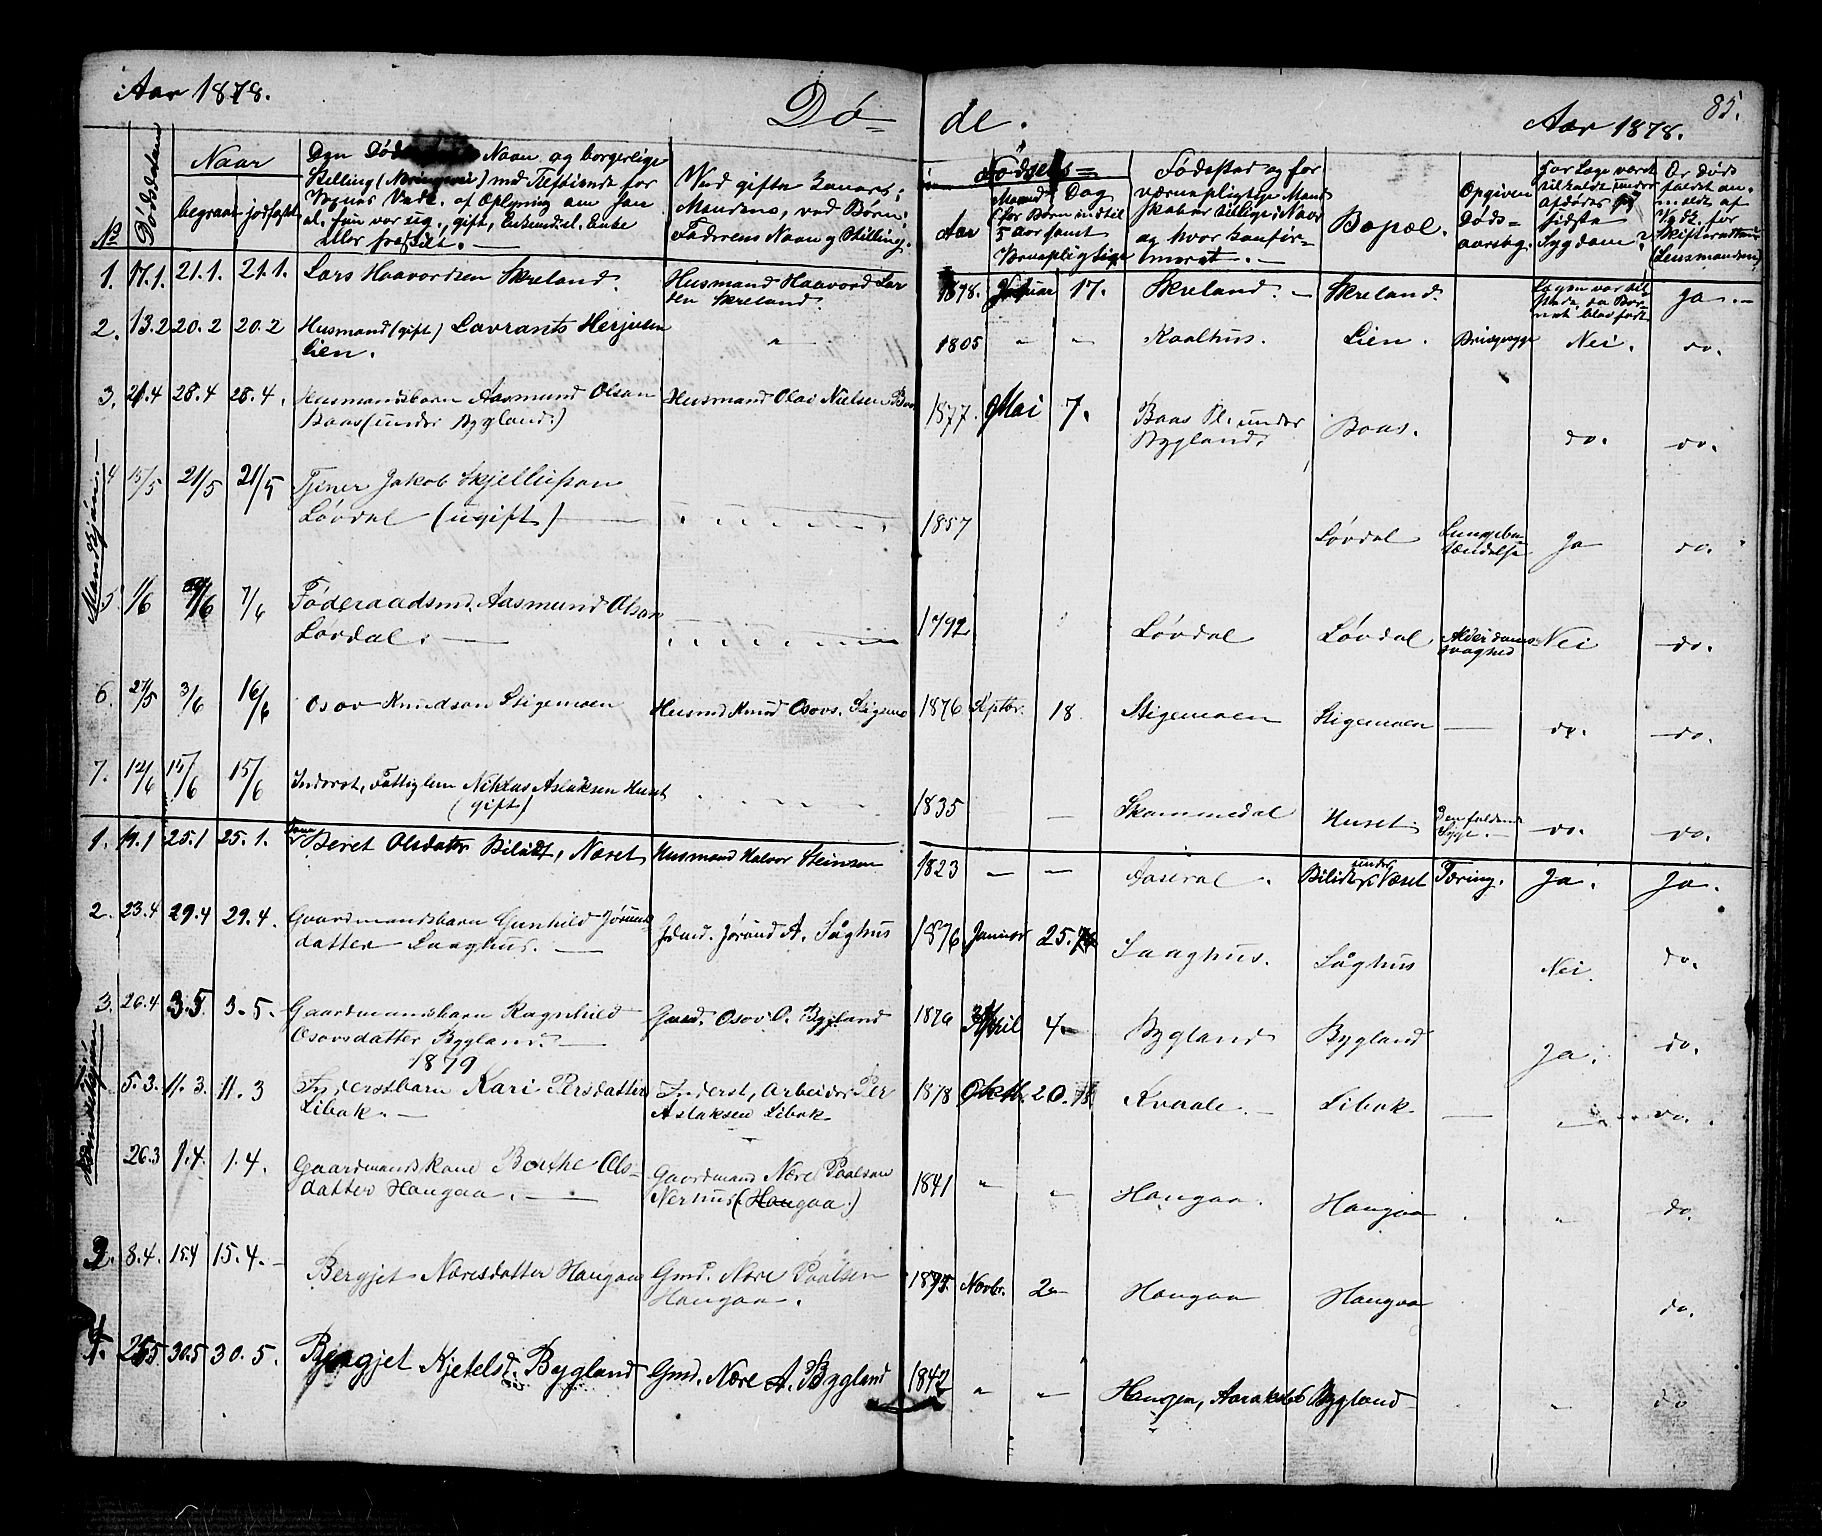 Aar 1878.
Dø-
de.
Aar 1878.
85.
No
Dødsdatum
Naar
begravet
jordfæstet
Den Dødes Navn og borgerlige
Stilling (Næringsvei) med Tilføiende for
Vognes Vedk. af Oplysning om han
el. hun var ug., gift, Enkemand, Enke
eller fraskilt. —
Ved gifte Koners:
Mandens, ved Børn:
Faderens Navn og Stilling.
Fødsels=
Aar
Maaned, Dag
(for Børn indtil
5 Aar samt
Værnepligtige
Fødested og for
værnepligtige Mand
skaber tillige: Naar
og hvor konfir-
meret. —
Bopæl.
Opgiven
Døds-
aarsag.
Før Læge været
tilkaldt under
afdødes
sidste
Sygdom?
Er Døds
faldet an-
meldt af
Vedk. for
Skifteretten
(Lensmanden)
Mandkjøn. —
1. 17.1. 21.1. 21.1. Lars Haavordsen Skreland. Husmand Haavord Lar
sen Skreland. 1878. Januar 17. Skreland. — Skreland. Lægen var til
stede, da Bar-
net blev født. Ja. —
2. 13.2 20.2 20.2 Husmand (gift) Lavrants Herjulsen
Lien. " 1805 " " Kaalhus. Lien. Brustsyge Nei. do.
3. 21.4 28.4 28.4. Husmandsbarn Aasmund Olsen
Baas (under Bygland.) Husmand Olav Nielsen Baas 1877. Mai 7. Baas Pl. under
Bygland. Baas. do. do.
4 15/5 21/5 21/5 Tjener Jakob Skjelleifsen
Løvdal (ugift) — 1857 Løvdal Lungebe-
tændelse Ja do.
5 1/6 7/6 7/6 Føderaadsmd. Aasmund Olsen
Løvdal. — 1792 Løvdal Løvdal Alderdoms-
svaghed Nei do.
6. 27/5 3/6 16/6 Osov Knudsen Stigemoen Husmd Knud Osovs. Stigemo 1876 Septbr. 18. Stigemoen Stigemoen — do. do.
7. 12/6 15/6 15/6 Inderst, Fattiglem Niklas Aslaksen Huset
(gift) 1835 — Skammedal Huset. Den faldende
Syge. — do. do.
Kvindekjøn
1. 19.1 25.1 25.1. Kone Beret Olsdatter Bilidt, Næset Husmand Halvor Steinsen 1823 — — Aaseral. Bilidt under Næset Tæring. Ja. Ja.
2. 23.4 29.4 29.4. Gaardmandsbarn Gunhild Jørunds
datter Laaghus. — Gdmd. Jørund A. Låghus 1876 Januar 25. Laaghus. Låghus Nei. do.
3. 26.4 3.5. 3.5. Gaardmansbarn Ragnhild
Osovsdatter Bygland. — Gaard. Osov O. Bygland 1876 April 4 — Bygland Bygland Ja. do.
1879
5.3. 11.3. 11.3 Inderstbarn Kari Persdatter
Libak. — Inderst, Arbeider Per
Aslaksen Libak — 1878 Oktb. 20. 78 Kvaale. — Libak — — do.
26.3 1.4. 1.4. Gaardmandskone Berthe Ols-
datter Haugaa. — Gaardmand Nære Paalsen
Nerhus (Haugaa.) 1841 " " Haugaa. Haugaa . " do.
3. 8.4. 15.4 15.4. — Bergjet Næresdatter Haugaa Gmd. Nære Paalsen
Haugaa. Novbr. 2 — Haugaa Haugaa do.
4. 25.5 30.5 30.5. Bergjet Kjetelsd. Bygland Gmd. Nære A. Bygland 1842 " " Haugen, Aarakstad Bygland " do